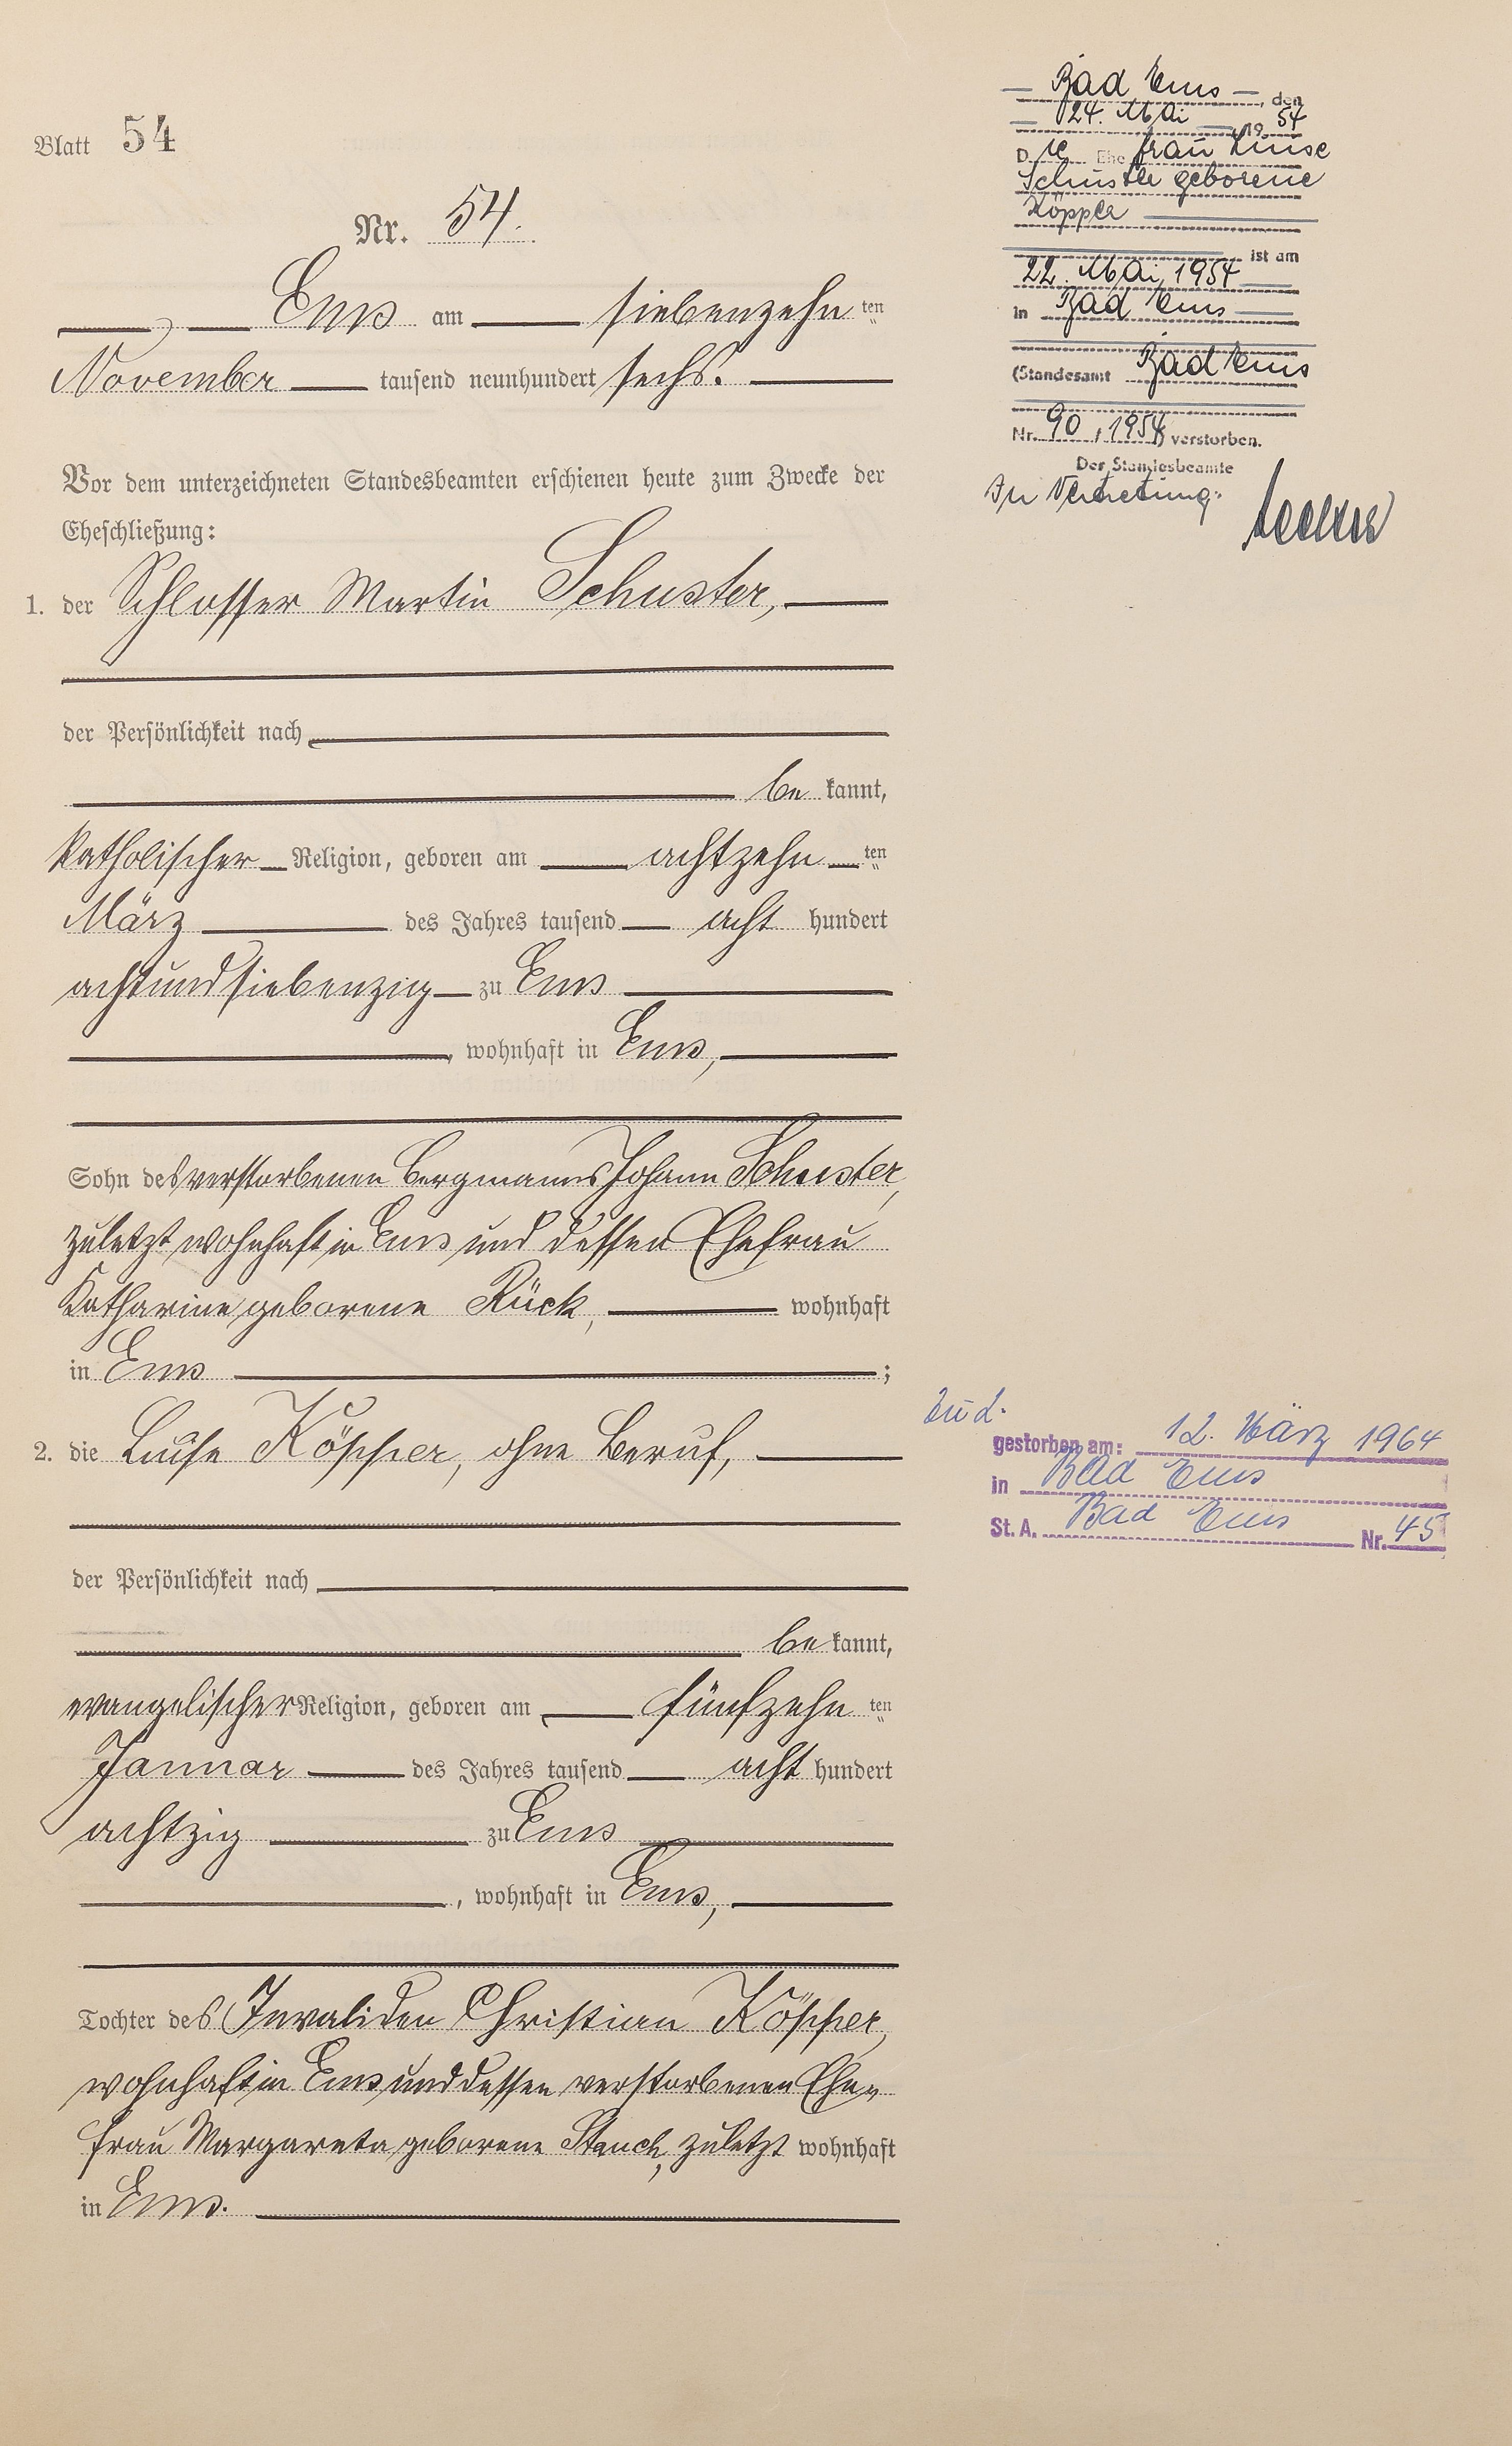 Blatt 54
Nr. 54.
Ems am siebenzehn ten
November tausend neunhundert sechs.
Vor dem unterzeichneten Standesbeamten erschienen heute zum Zwecke der
Eheschließung:
1. der Schlosser Martin Schuster,
der Persönlichkeit nach
be kannt,
katholischer Religion, geboren am achtzehn ten
März des Jahres tausend acht hundert
achtundsiebenzig zu Ems
, wohnhaft in Ems,
Sohn des verstorbenen Bergmanns Johann Schuster,
zuletzt wohnhaft in Ems und dessen Ehefrau
Katharine geborene Rück, wohnhaft
in Ems ;
2. die Luise Köpper, ohne Beruf,
der Persönlichkeit nach
be kannt,
evangelischer Religion, geboren am fünfzehn ten
Januar des Jahres tausend acht hundert
achtzig zu Ems
, wohnhaft in Ems,
Tochter des Invaliden Christian Köpper,
wohnhaft in Ems und dessen verstorbenen Ehe-
frau Margareta geborene zuletzt wohnhaft
in Ems.
Bad Ems, den
24. Mai 19 54
Die Ehefrau Luise
Schuster geborene
Köpper
ist am
22. Mai 1954
in Bad Ems
(Standesamt Bad Ems
Nr. 90 / 1954) verstorben.
Der Standesbeamte
In Vertretung:
gestorben am: 12. März 1964
in Bad Ems
St. A. Bad Ems Nr. 45